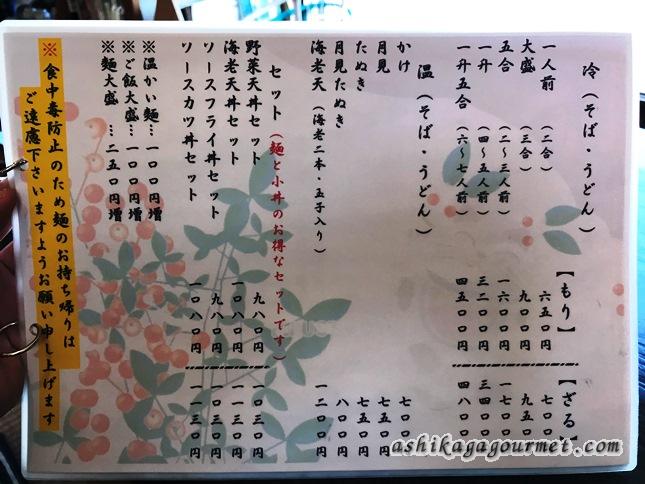 冷（そば・うどん）　【もり】　【ざる】
一人前（二合）　六五〇円　七〇〇円
大盛（三合）　九〇〇円　九五〇円
五合（二〜三人前）　一六〇〇円　一七〇〇円
一升（四〜五人前）　三二〇〇円　三四〇〇円
一升五合（六〜七人前）　四五〇〇円　四八〇〇円
温（そば・うどん）
かけ　七〇〇円
月見　七五〇円
たぬき　七五〇円
月見たぬき　八〇〇円
海老天（海老二本・玉子入り）　一二〇〇円
セット（麺と小丼のお得なセットです）
野菜天丼セット　九八〇円　一〇三〇円
海老天丼セット　一〇八〇円　一一三〇円
ソースフライ丼セット　九八〇円　一〇三〇円
ソースカツ丼セット　一〇八〇円　一一三〇円
※温かい麺…一〇〇円増
※ご飯大盛…一〇〇円増
※麺大盛…二五〇円増
※食中毒防止のため麺のお持ち帰りは
ご遠慮下さいますようお願い申し上げます
ashikagagourmet.com